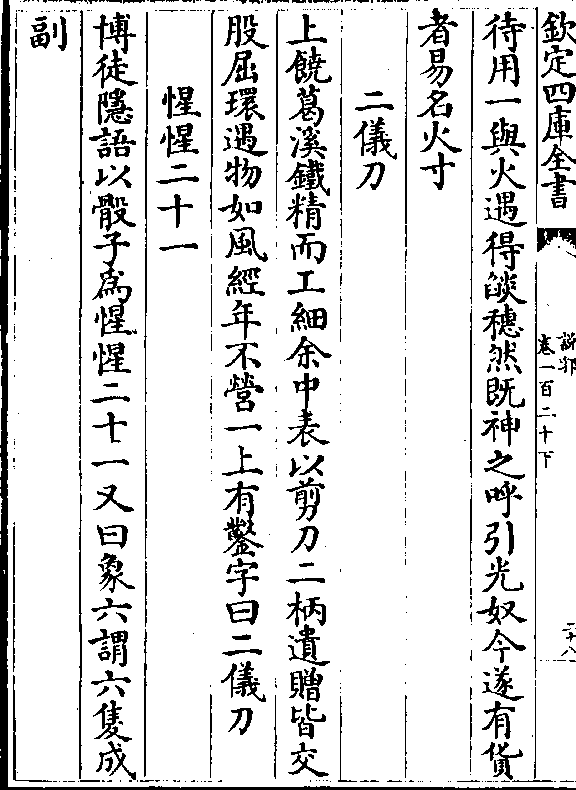 欽定四庫全書
說郛
卷一百二十下
二十八
待用一與火遇得燄穗然既神之呼引光奴今遂有貨
者易名火寸
二儀刀
上饒葛溪鐵精而工細余中表以剪刀二柄遺贈皆交
股屈環遇物如風經年不營一上有鏨字曰二儀刀
惺惺二十一
博徒隱語以骰子為惺惺二十一又曰象六謂六隻成
副